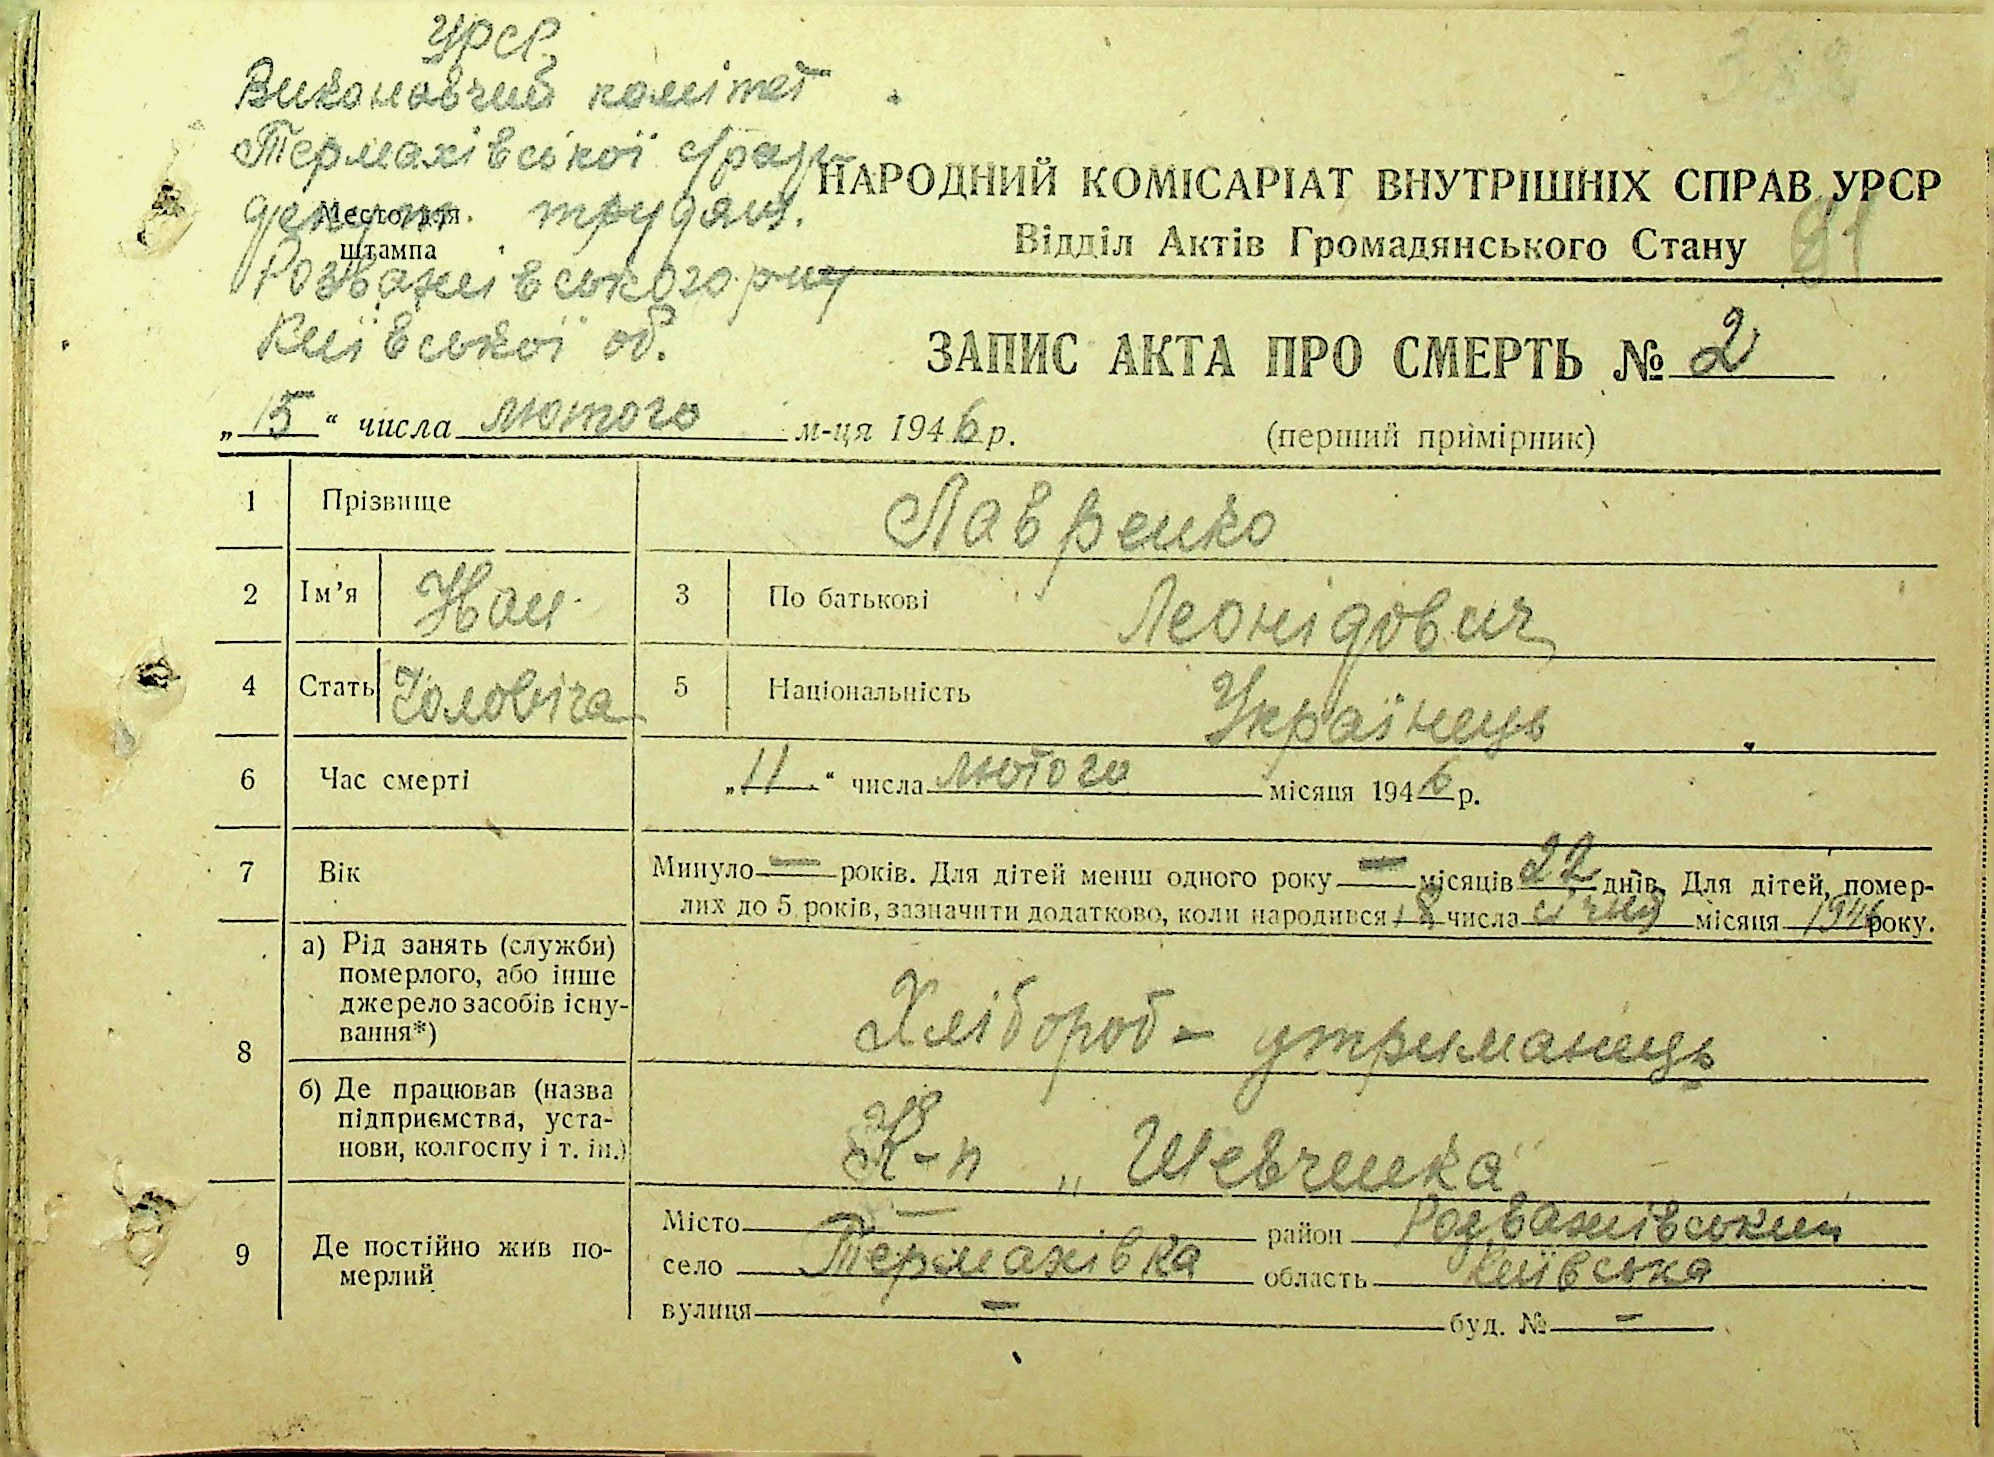 УРСР
Виконавчий комітет
Термахівської с/ради
депут. трудящ.
Место для
штампа
Розважівського р-ну
Київської об.
НАРОДНИЙ КОМІСАРІАТ ВНУТРІШНІХ СПРАВ УРСР
Відділ Актів Громадянського Стану
ЗАПИС АКТА ПРО СМЕРТЬ № 2
„15“ числа лютого м-ця 1946 р.
(перший примірник)
1 Прізвище Лавренко
2 Ім’я 3 По батькові Леонідович
4 Стать Чоловіча 5 Національність Українець
6 Час смерті „11“ числа лютого місяця 1946 р.
7 Вік Минуло — років. Для дітей менш одного року — місяців 22 днів. Для дітей, помер-
лих до 5 років, зазначити додатково, коли народився 18 числа січня місяця 1946 року.
8 а) Рід занять (служби)
померлого, або інше
джерело засобів існу-
вання*)
Хлібороб - утриманець
б) Де працював (назва
підприємства, уста-
нови, колгоспу і т. ін.)
К-п „Шевченка“
9 Де постійно жив по-
мерлий
Місто — район Розважівський
село Термахівка область Київська
вулиця — буд. № —